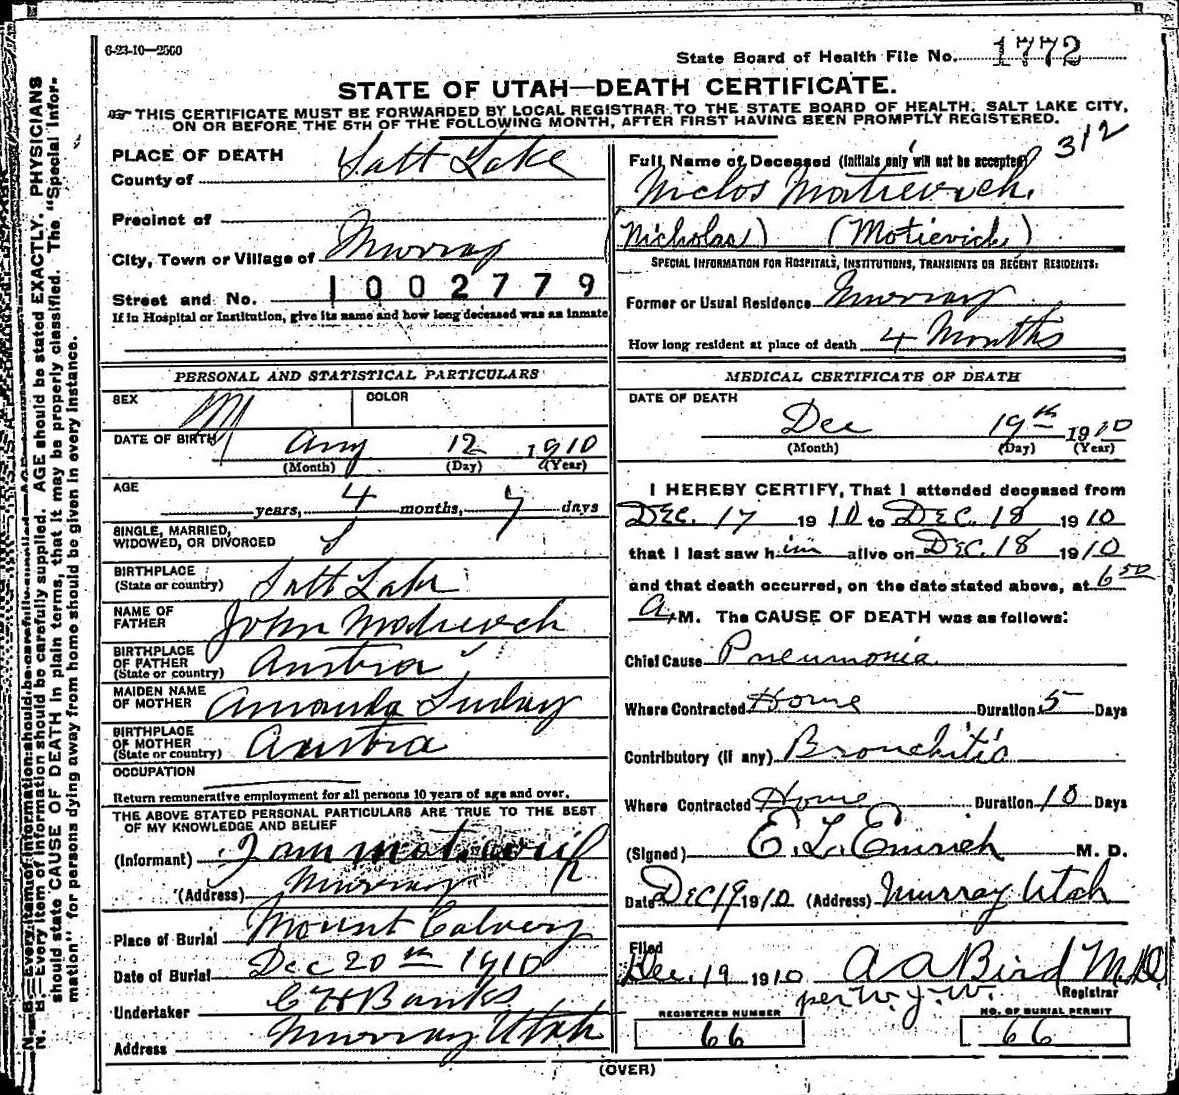 6-23-10—2560
State Board of Health File No. 1772
STATE OF UTAH—DEATH CERTIFICATE.
THIS CERTIFICATE MUST BE FORWARDED BY LOCAL REGISTRAR TO THE STATE BOARD OF HEALTH, SALT LAKE CITY,
ON OR BEFORE THE 5TH OF THE FOLLOWING MONTH, AFTER FIRST HAVING BEEN PROMPTLY REGISTERED.
312
PLACE OF DEATH
County of Salt Lake
Precinct of
City, Town or Village of Murray
Street and No. 1002779
If in Hospital or Institution, give its name and how long deceased was an inmate
Full Name of Deceased (initials only will not be accepted)
Niclos Matievich.
(Nicholas) (Motievich)
SPECIAL INFORMATION FOR HOSPITALS, INSTITUTIONS, TRANSIENTS OR RECENT RESIDENTS:
Former or Usual Residence Murray
How long resident at place of death 4 Months
PERSONAL AND STATISTICAL PARTICULARS
SEX M COLOR
DATE OF BIRTH Aug 12 1910
(Month) (Day) (Year)
AGE
years, 4 months, 7 days
SINGLE, MARRIED,
WIDOWED, OR DIVORCED S
BIRTHPLACE
(State or country) Salt Lake
NAME OF
FATHER John
BIRTHPLACE
OF FATHER
(State or country) Austria
MAIDEN NAME
OF MOTHER Amanda
BIRTHPLACE
OF MOTHER
(State or country) Austria
OCCUPATION
Return remunerative employment for all persons 10 years of age and over.
THE ABOVE STATED PERSONAL PARTICULARS ARE TRUE TO THE BEST
OF MY KNOWLEDGE AND BELIEF
(Informant)
(Address) Murray
Place of Burial Mount Calvery
Date of Burial Dec 20th 1910
Undertaker C H Banks
Address Murray Utah
MEDICAL CERTIFICATE OF DEATH
DATE OF DEATH
Dec 19th 1910
(Month) (Day) (Year)
I HEREBY CERTIFY, That I attended deceased from
DEC. 17 1910 to DEC. 18 1910
that I last saw him alive on DEC. 18 1910
and that death occurred, on the date stated above, at 6 50
A. M. The CAUSE OF DEATH was as follows:
Chief Cause Pneumonia
Where Contracted Home Duration 5 Days
Contributory (if any) Bronchitis
Where Contracted Home Duration 10 Days
(Signed) E. L. Emrich M. D.
Date Dec 19 1910 (Address) Murray Utah
Filed
Dec. 19 1910 A A Bird M.D.
per W. J. W. Registrar
REGISTERED NUMBER
66
NO. OF BURIAL PERMIT
66
(OVER)
N. B.—Every item of information should be carefully supplied. AGE should be stated EXACTLY. PHYSICIANS
should state CAUSE OF DEATH in plain terms, that it may be properly classified. The "Special Infor-
mation" for persons dying away from home should be given in every instance.